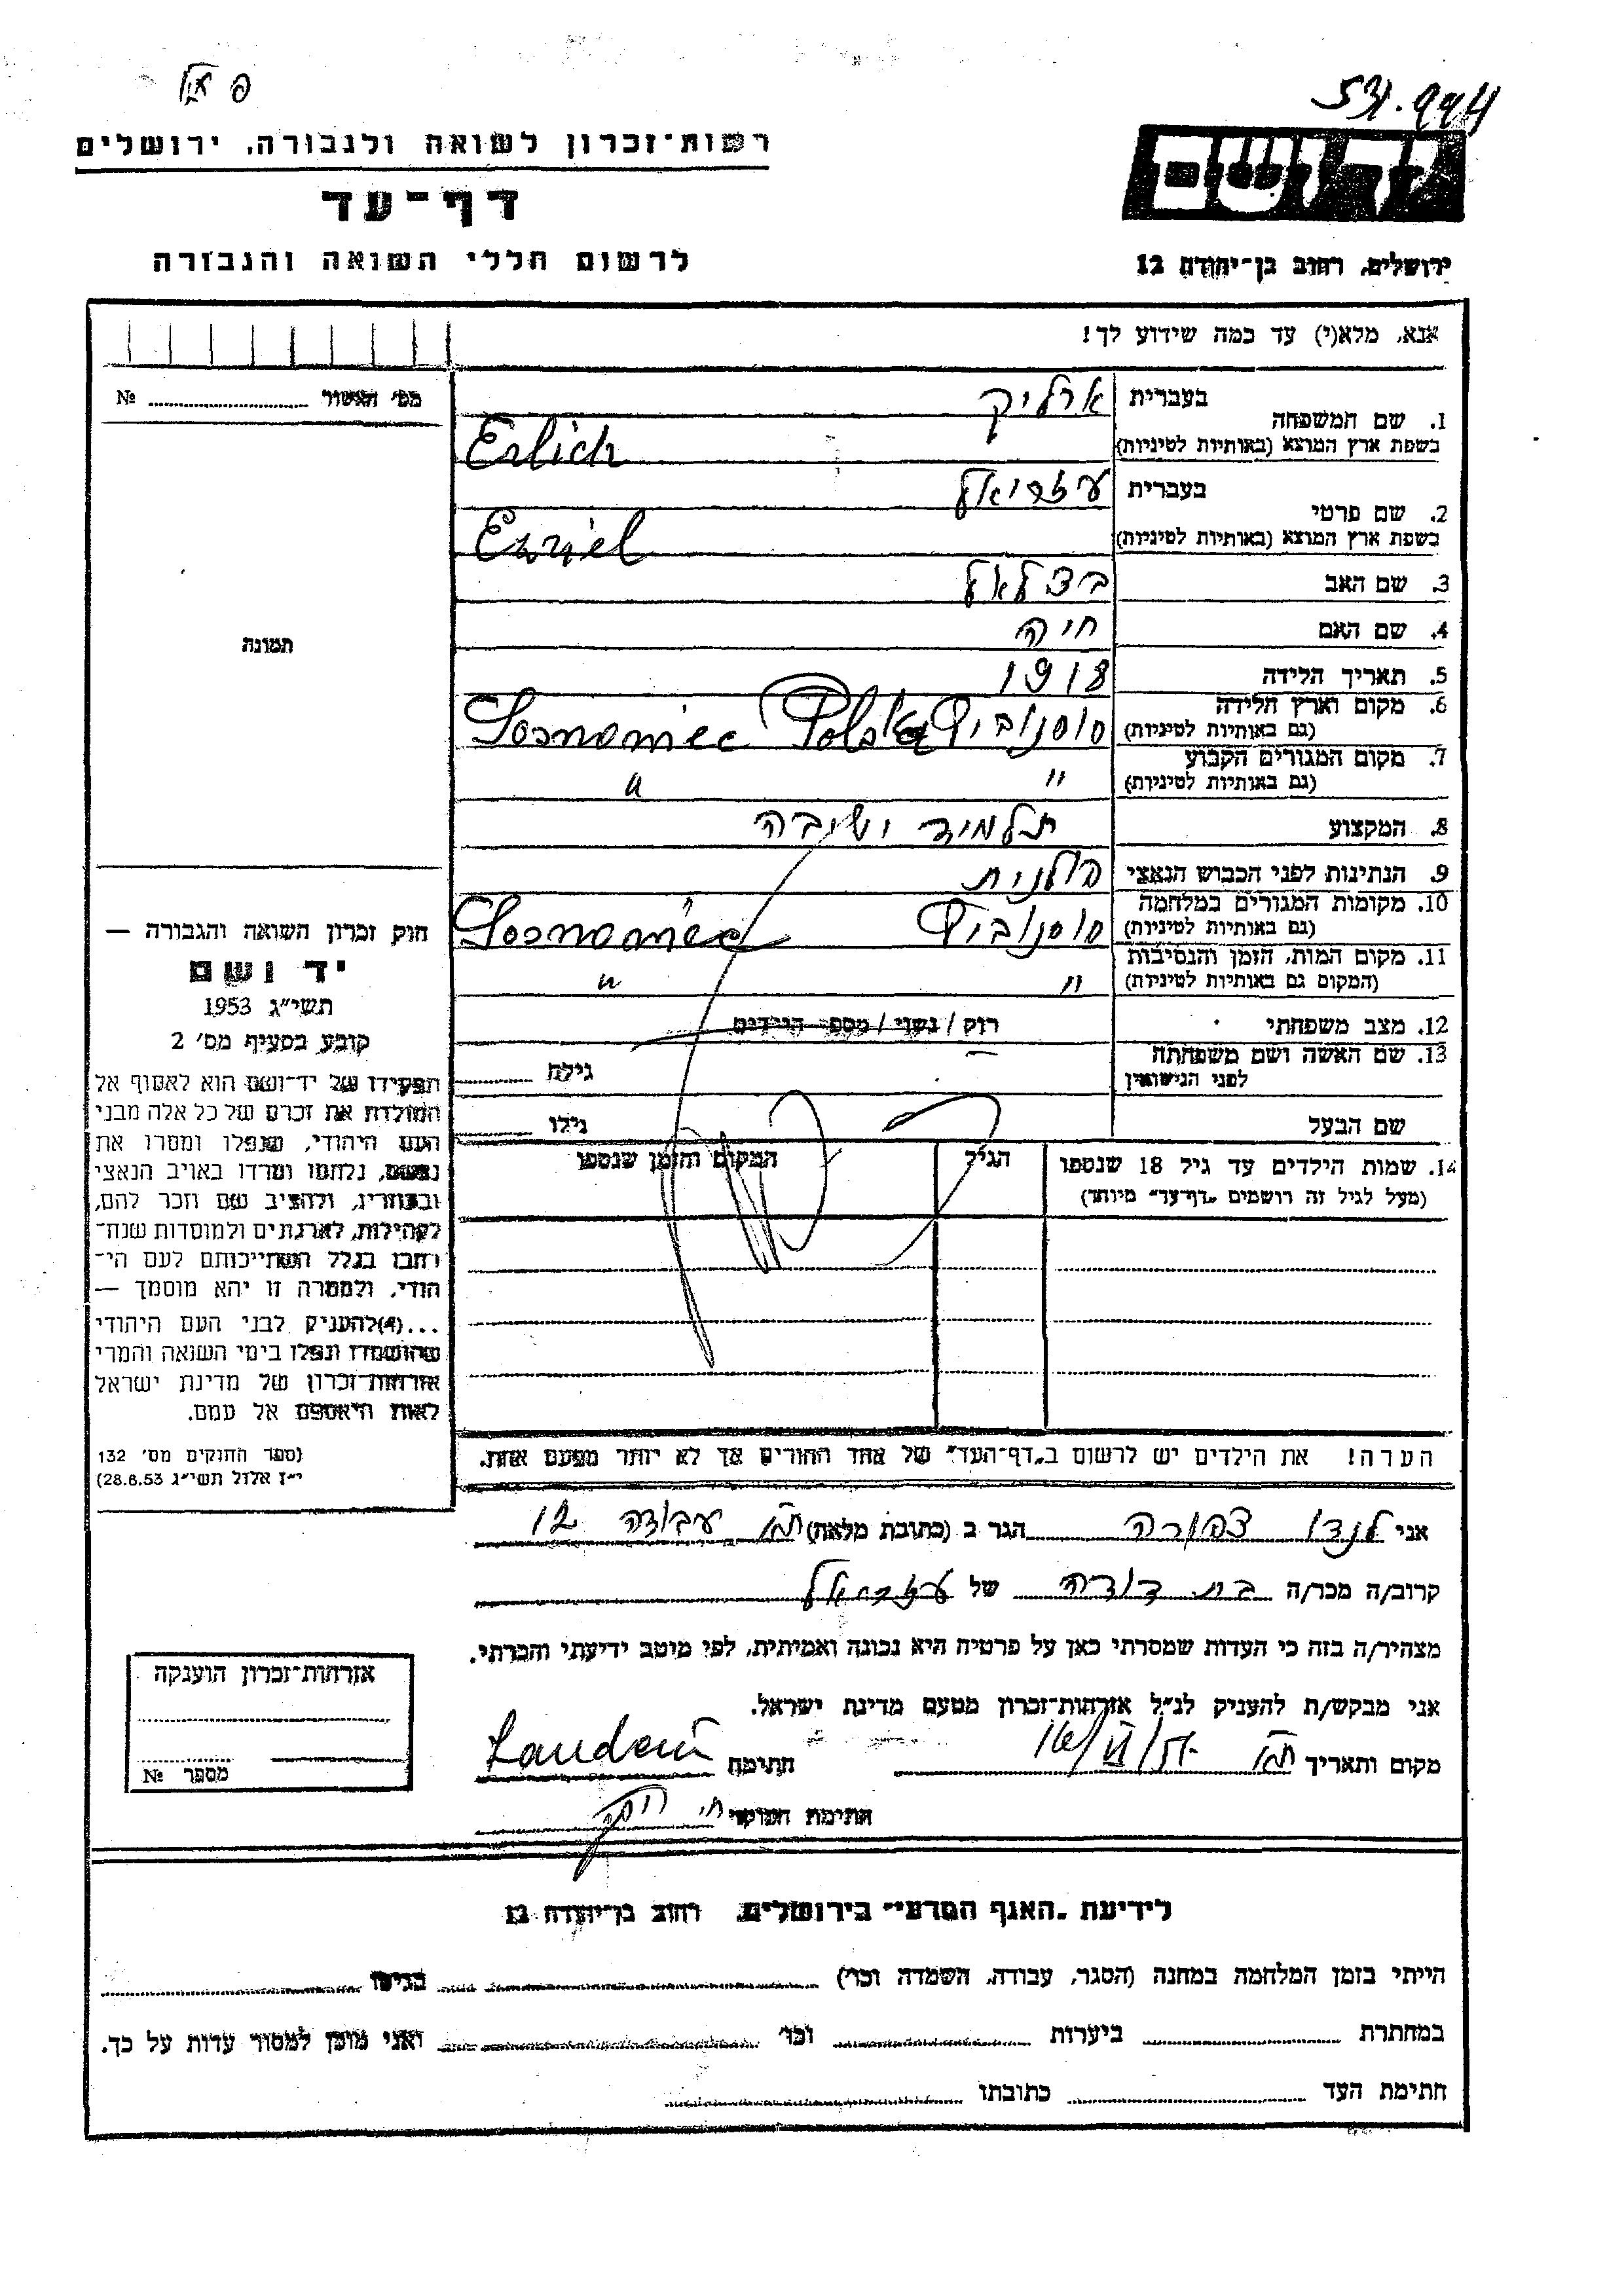 רשות־זכרון לשואה ולגבורה, ירושלים
דף־עד
לרשום חללי השואה והגבורה
ירושלים, רחוב בן־יהודה 12
אנא, מלא(י) עד כמה שידוע לך!
מס׳ האשור №
תמונה
1. שם המשפחה בעברית ארליך
בשפת ארץ המוצא (באותיות לטיניות) Erlich
2. שם פרטי בעברית עזריאל
בשפת ארץ המוצא (באותיות לטיניות) Ezriel
3. שם האב בצלאל
4. שם האם חיה
5. תאריך הלידה 1918
6. מקום וארץ הלידה
(גם באותיות לטיניות) סוסנוביץ Sosnowiec Polska
7. מקום המגורים הקבוע
(גם באותיות לטיניות) " "
8. המקצוע תלמיד ישיבה
9. הנתינות לפני הכבוש הנאצי פולנית
10. מקומות המגורים במלחמה
(גם באותיות לטיניות) סוסנוביץ Sosnowiec
11. מקום המות, הזמן והנסיבות
(המקום גם באותיות לטיניות) " "
12. מצב משפחתי רוק / נשוי / מספר הילדים
13. שם האשה ושם משפחתה
לפני הנישואין גילה
שם הבעל גילו
14. שמות הילדים עד גיל 18 שנספו הגיל המקום והזמן שנספו
(מעל לגיל זה רושמים „דף־עד" מיוחד)
הערה! את הילדים יש לרשום ב„דף־העד" של אחד ההורים אך לא יותר מפעם אחת.
חוק זכרון השואה והגבורה —
יד ושם
תשי״ג 1953
קובע בסעיף מס׳ 2
תפקידו של יד־ושם הוא לאסוף אל
המולדת את זכרם של כל אלה מבני
העם היהודי, שנפלו ומסרו את
נפשם, נלחמו ומרדו באויב הנאצי
ובעוזריו, ולהציב שם וזכר להם,
לקהילות, לארגונים ולמוסדות שנח־
רבו בגלל השתייכותם לעם הי־
הודי, ולמטרה זו יהא מוסמך —
...(4) להעניק לבני העם היהודי
שהושמדו ונפלו בימי השואה והמרי
אזרחות־זכרון של מדינת ישראל
לאות היאספם אל עמם.
(ספר החוקים מס׳ 132
י״ז אלול תשי״ג 28.8.53)
אני לנדו צפורה הגר ב (כתובת מלאה) ת״א עבודה 12
קרוב/ה מכר/ה בת דודה של עזריאל
מצהיר/ה בזה כי העדות שמסרתי כאן על פרטיה היא נכונה ואמיתית, לפי מיטב ידיעתי והכרתי.
אני מבקש/ת להעניק לנ״ל אזרחות־זכרון מטעם מדינת ישראל.
מקום ותאריך ת״א חתימה
חתימת הפוקד
אזרחות־זכרון הוענקה
מספר №
לידיעת „האגף המדעי" בירושלים, רחוב בן־יהודה 12
הייתי בזמן המלחמה במחנה (הסגר, עבודה, השמדה וכו׳) בגיטו
במחתרת ביערות וכו׳ ואני מוכן למסור עדות על כך.
חתימת העד כתובתו